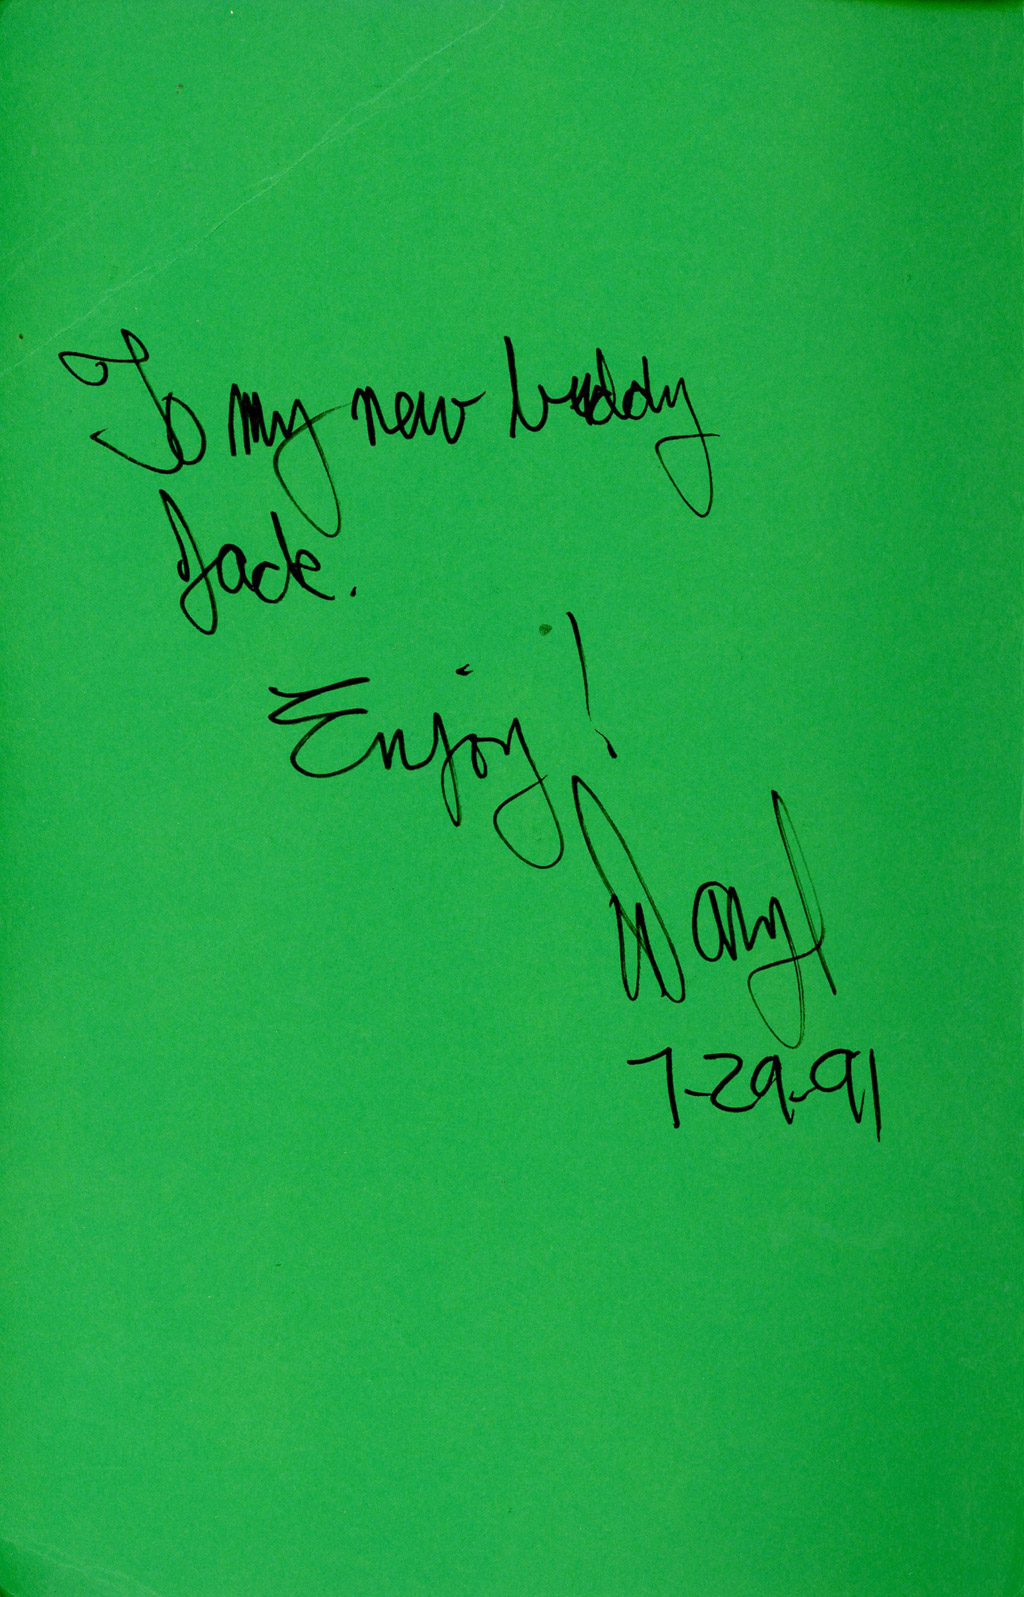 To my new buddy
Jack.
Enjoy!
Daryl
7-29-91